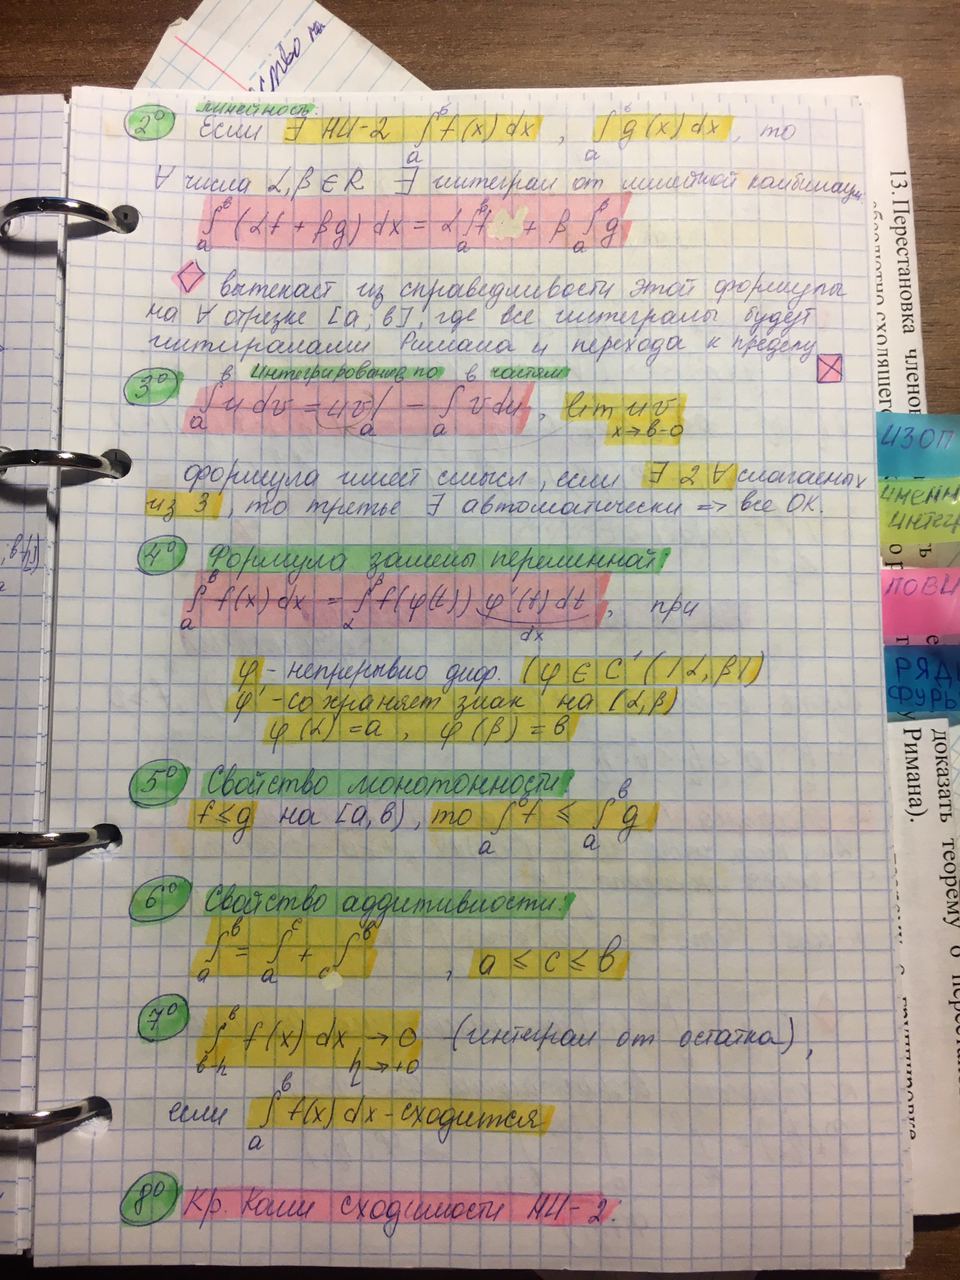 ство на
линейность.
2⁰ Если ∃ НИ-2 ∫ₐᵇ f(x) dx , ∫ₐᵇ g(x) dx, то
∀ числа α, β ∈ R ∃ интеграл от линейной комбинации:
∫ₐᵇ (αf + βg) dx = α∫ₐᵇ f + β ∫ₐᵇ g
вытекает из справедливости этой формулы
на ∀ отрезке [a; b'], где все интегралы будут
интегралами Римана и перехода к пределу
3⁰ Интегрирование по частям
∫ₐᵇ u dv = uv|ₐᵇ − ∫ₐᵇ v du, lim uv
x→b-0
формула имеет смысл, если ∃ 2 ∀ слагаемых
из 3, то третье ∃ автоматически ⇒ все ОК.
4⁰ Формула замены переменной
∫ₐᵇ f(x) dx = ∫_α^β f(φ(t)) φ'(t) dt, при
dx
φ - непрерывно диф. (φ ∈ C¹([α, β))
φ' - сохраняет знак на [α, β)
φ(α) = a, φ(β) = b
5⁰ Свойство монотонности:
f ≤ g на [a, b), то ∫ₐᵇ f ≤ ∫ₐᵇ g
6⁰ Свойство аддитивности:
∫ₐᵇ = ∫ₐᶜ + ∫_cᵇ , a ≤ c ≤ b
7⁰ ∫_{b-η}ᵇ f(x) dx → 0 (интеграл от остатка),
η→+0
если ∫ₐᵇ f(x) dx - сходится
8⁰ Кр. Коши сходимости НИ-2.
13. Перестановка членов
ИЗОП
ИНТЕГ
РЯД
ФУРЬ
доказать теорему о
Римана).